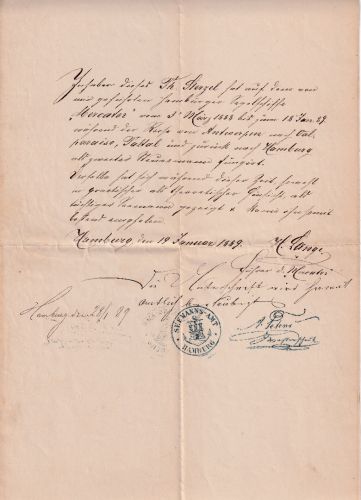 Inhaber dieses Th. Sterzel hat auf dem von
mir geführten Hamburger Segelschiffe
"Mercator" vom 5t März 1888 bis zum 18 Jan. 89
während der Reise von Antwerpen nach Val-
paraiso, Taltal und zurück nach Hamburg
als zweiter Steuermann fungirt.
Derselbe hat sich während dieser Zeit, sowohl
in practischer als theoretischer Hinsicht, als
tüchtiger Seemann gezeigt & kann ihn somit
bestens empfehlen.
Hamburg, den 19 Januar 1889.
H. Lange
Führer d. Mercator
Die Unterschrift wird hiermit
amtlich beglaubigt
Hamburg den 28/1 89
SEEMANNS-AMT
HAMBURG